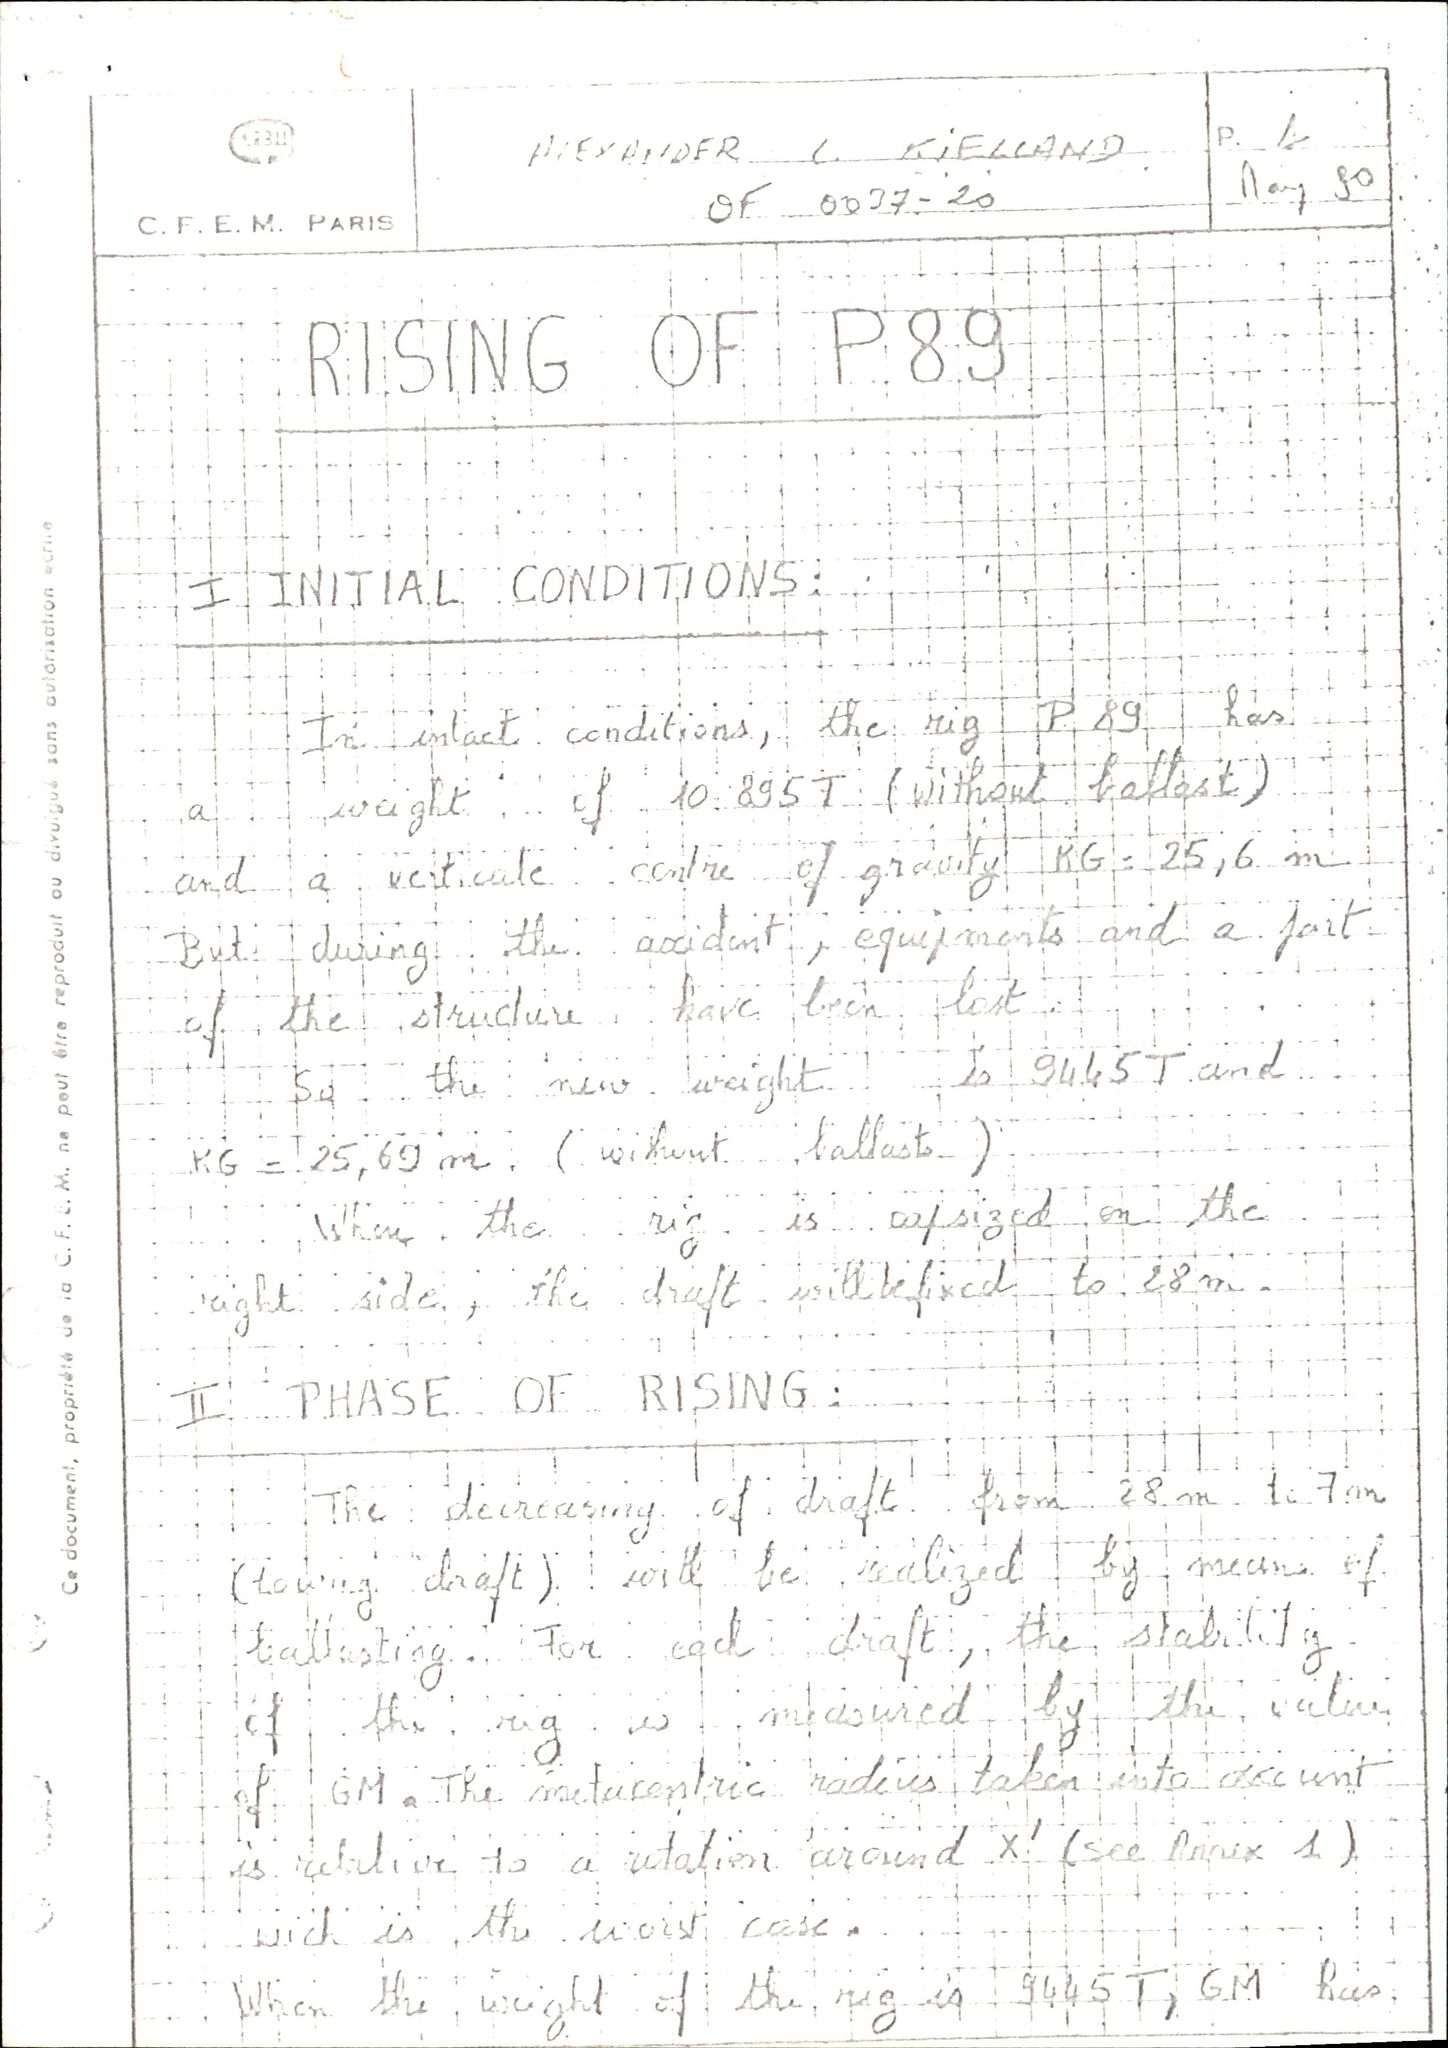 CFEM
C. F. E. M. PARIS
ALEXANDER L. KIELLAND
OF 0037-20
P. 1
May 80
RISING OF P89
I INITIAL CONDITIONS:
In intact conditions, the rig P 89 has
a weight of 10.895T (without ballast)
and a verticale centre of gravity KG = 25,6 m
But during the accident, equipments and a part
of the structure have been lost.
So the new weight is 9445T and
KG = 25,69 m. (without ballasts)
When the rig is capsized on the
right side, the draft will be fixed to 28 m.
II PHASE OF RISING:
The decreasing of draft from 28 m to 7 m
(towing draft) will be realized by means of
ballasting. For each draft, the stability
of the rig is measured by the value
of GM. The metacentric radius taken into account
is relative to a rotation around X' (see Annex 1)
wich is the worst case.
When the weight of the rig is 9445T, GM has
Ce document, propriété de la C.F.E.M. ne peut être reproduit ou divulgué sans autorisation écrite